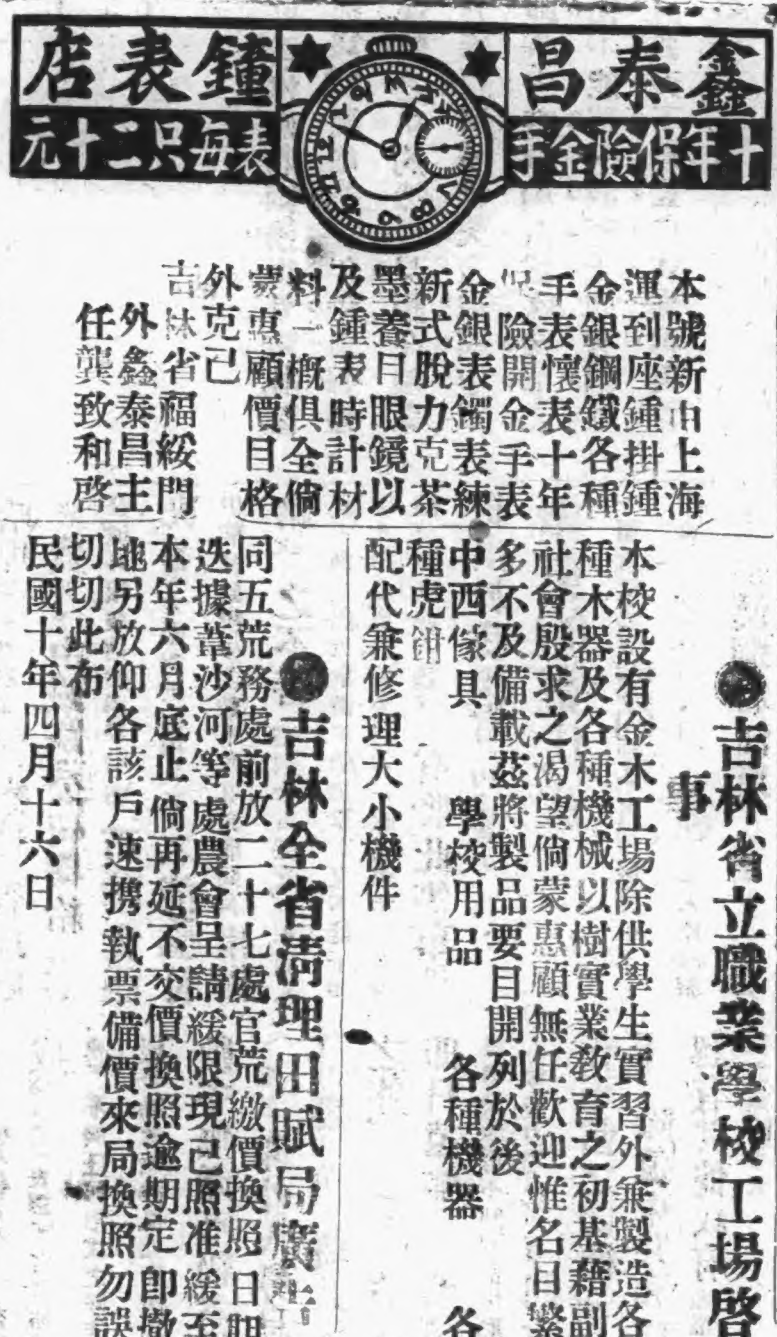 鑫泰昌
鐘表店
十年保險金手
表每只二十元
本號新由上海
運到座鍾掛鍾
金銀鋼鐵各種
手表懷表十年
保險開金手表
金銀表鐲表練
新式脫力克茶
墨養目眼鏡以
及鍾表時計材
料一概俱全倘
蒙惠顧價目格
外克己
吉林省福綏門
外鑫泰昌主
任龔致和啓
吉林省立職業學校工場啓
事
本校設有金木工場除供學生實習外兼製造各
種木器及各種機械以樹實業敎育之初基藉副
社會殷求之渴望倘蒙惠顧無任歡迎惟名目繁
多不及備載茲將製品要目開列於後
中西傢具 學校用品 各種機器 各
種虎鉗
配代兼修理大小機件
吉林全省淸理田賦局廣告
同五荒務處前放二十七處官荒繳價換照日期
迭據葦沙河等處農會呈請緩限現已照准緩至
本年六月底止倘再延不交價換照逾期定卽撤
地另放仰各該戶速携執票備價來局換照勿誤
切切此布
民國十年四月十六日